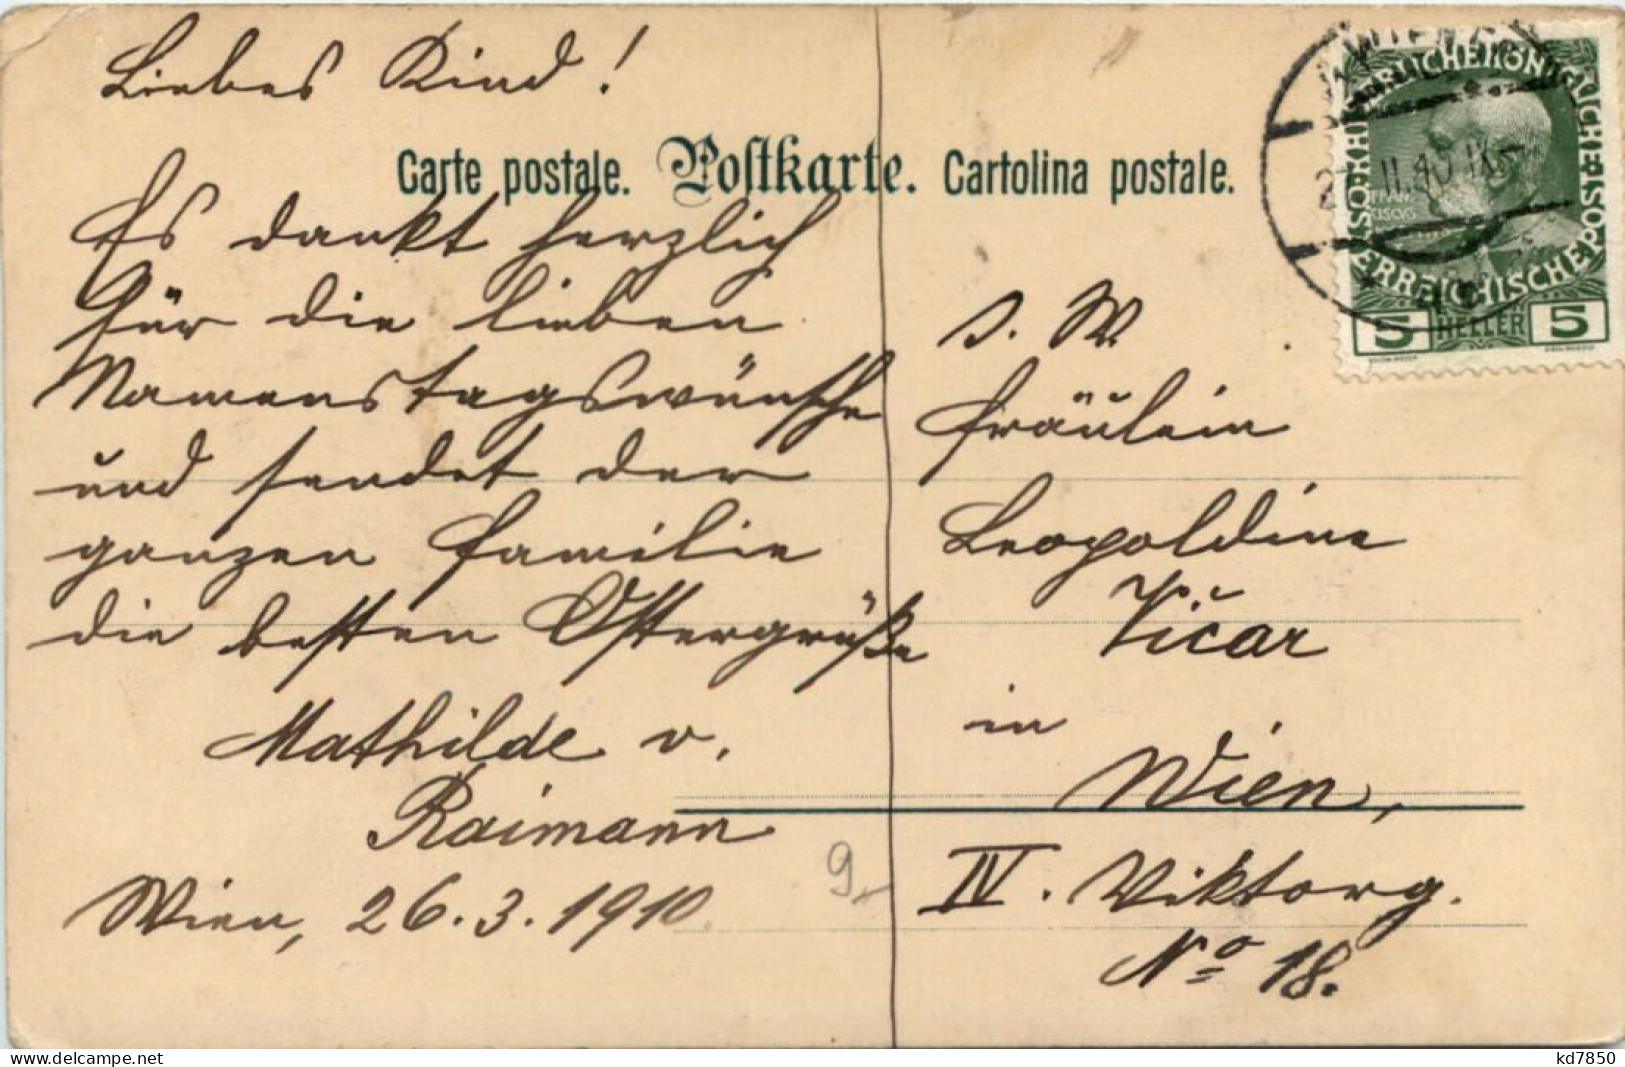 Liebes Kind!
Carte postale. Postkarte. Cartolina postale.
Es dankt herzlich
für die lieben
Namenstagswünsche
und sendet der
ganzen Familie
die besten Ostergrüße
Mathilde v.
Raimann
Wien, 26.3.1910.
S. W.
Fräulein
Leopoldine
Vičar
in
Wien,
IV. Viktorg.
Nº 18.
9.-
KAISERLICHE KÖNIGLICHE POST
ÖSTERREICHISCHE
5 HELLER 5
www.delcampe.net
kd7850